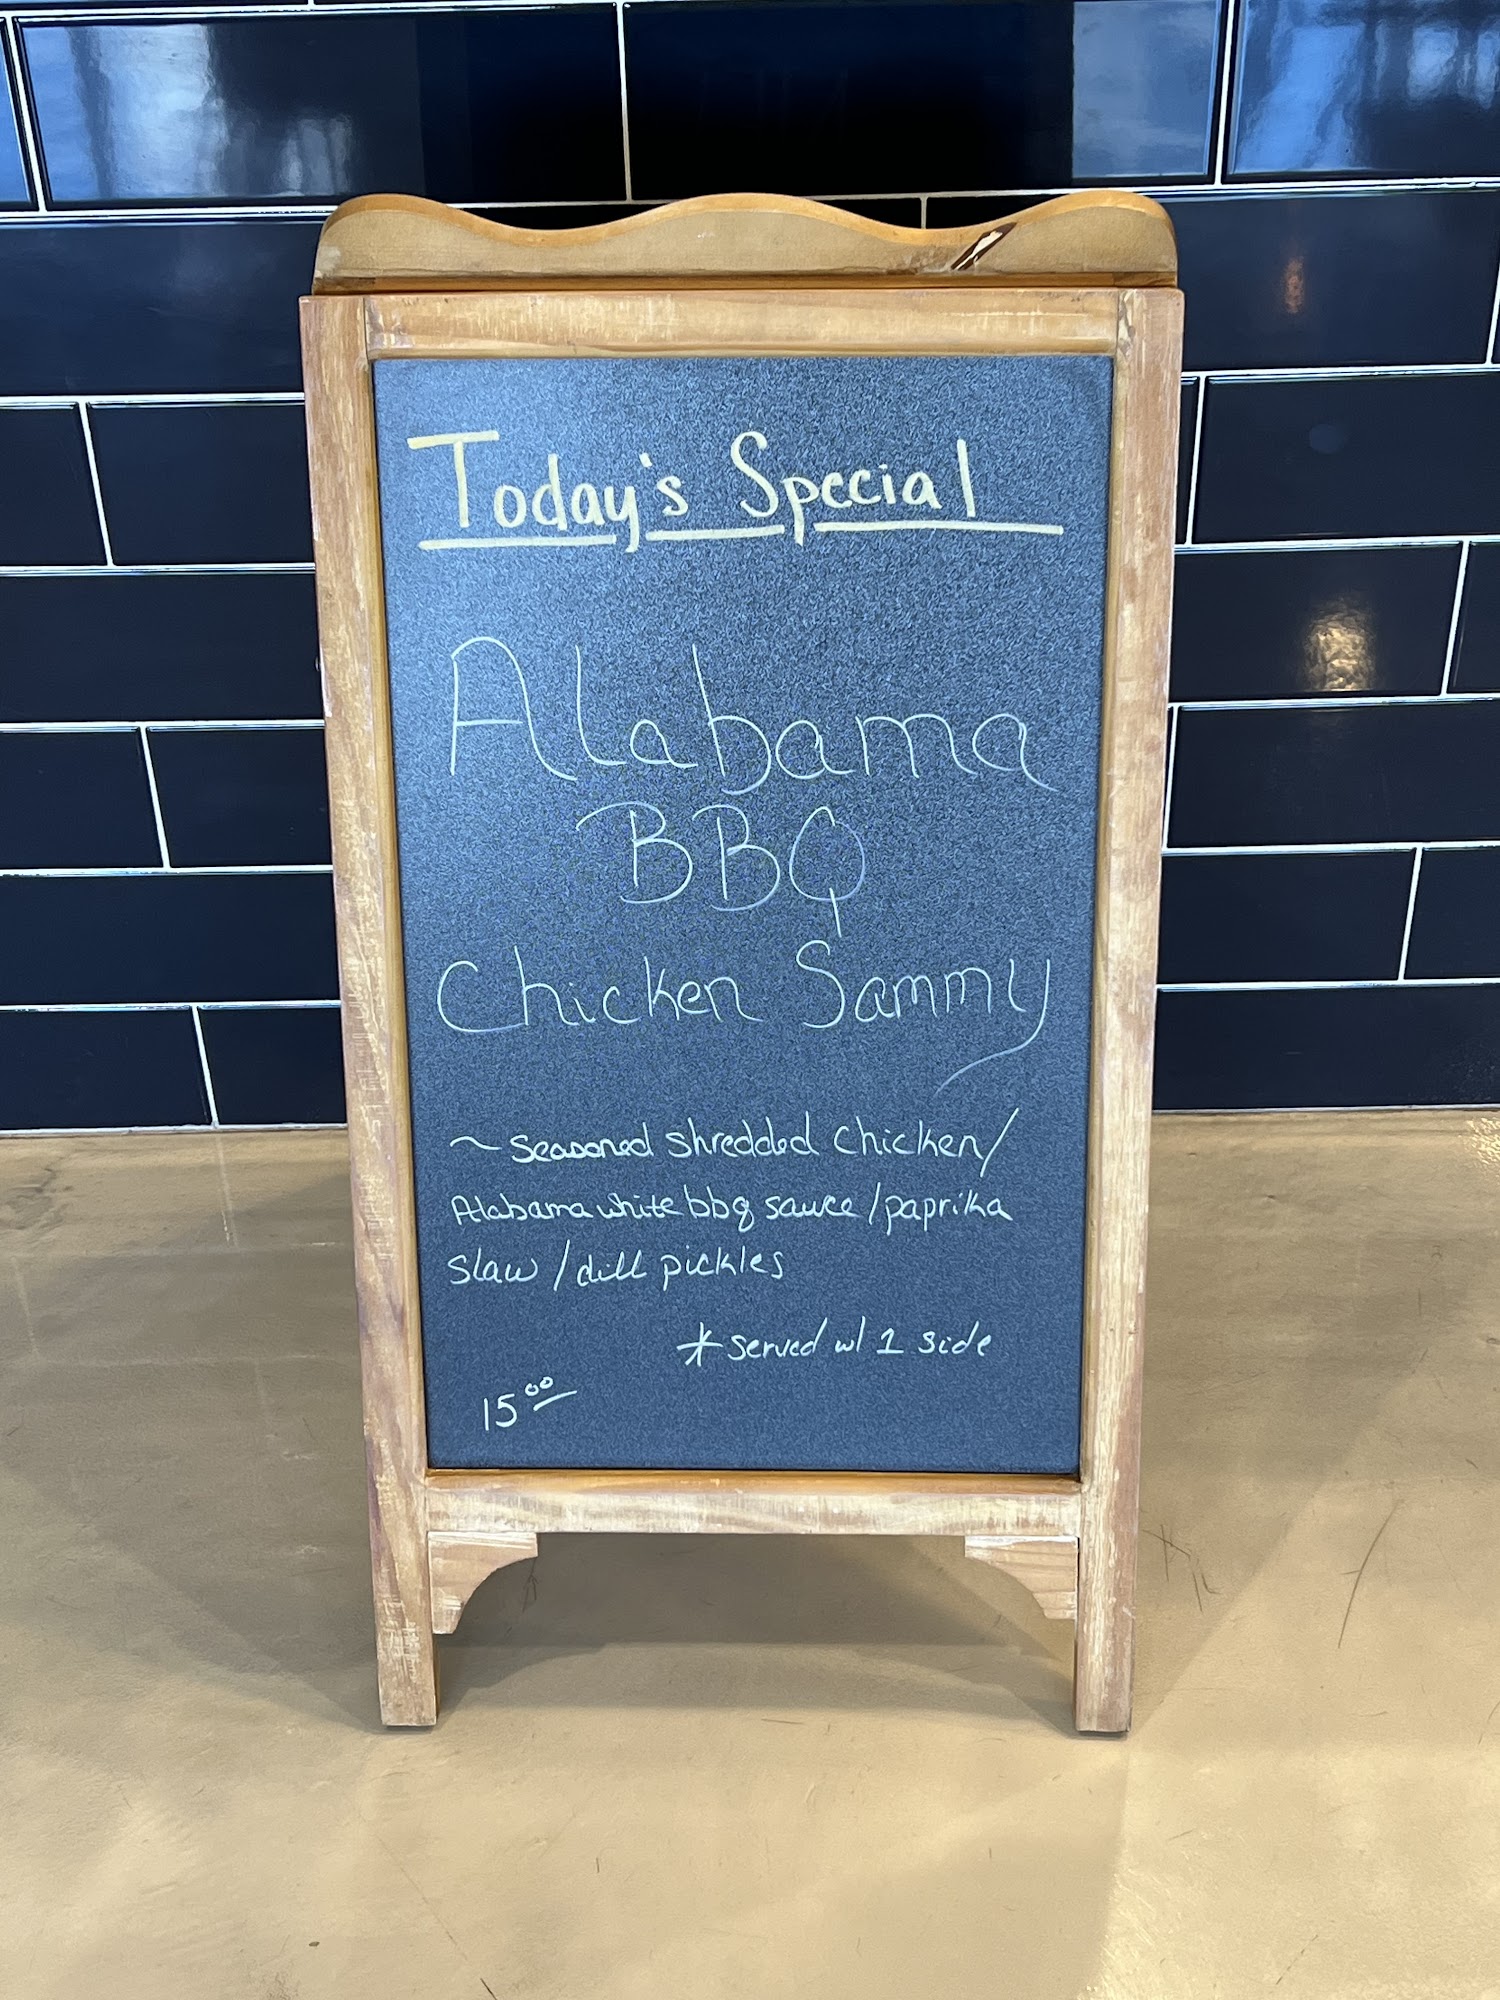 Today's Special
Alabama
BBQ
Chicken Sammy
~ seasoned shredded chicken/
Alabama white bbq sauce/paprika
slaw/dill pickles
* served w/ 1 side
15.00